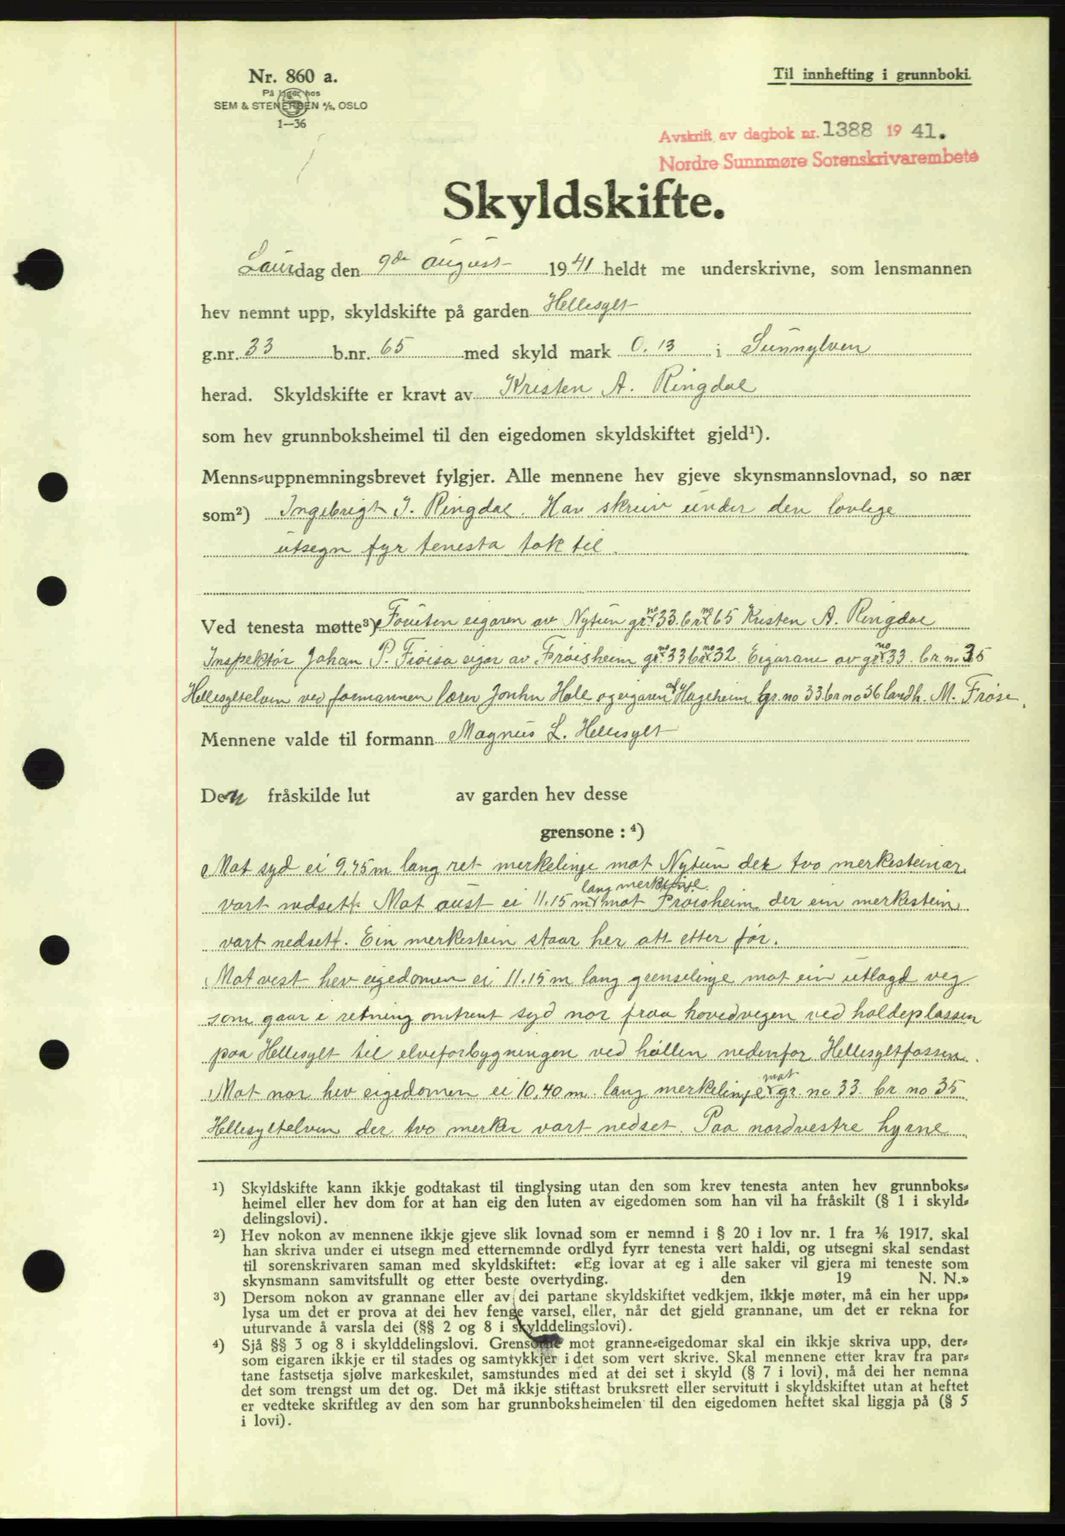 Nr. 860 a.
På lager hos
SEM & STENERSEN A/S, OSLO
1—36
Til innhefting i grunnboki.
Avskrift av dagbok nr. 1388 19 41.
Nordre Sunnmøre Sorenskrivarembete
Skyldskifte.
Laurdag den 9de august 1941 heldt me underskrivne, som lensmannen
hev nemnt upp, skyldskifte på garden Hellesylt
g.nr. 33 b.nr. 65 med skyld mark 0.13 i Sunnylven
herad. Skyldskifte er kravt av Kristen A. Ringdal
som hev grunnboksheimel til den eigedomen skyldskiftet gjeld¹).
Menns-uppnemningsbrevet fylgjer. Alle mennene hev gjeve skynsmannslovnad, so nær
som²) Ingebrigt I. Ringdal. Han skreiv under den lovlege
utsegn fyr tenesta tok til.
Ved tenesta møtte³) Foruten eigaren av Nytun gr no 33. br no 65 Kristen A. Ringdal
Inspektør Johan P. Frøisa eigar av Frøisheim gr no 33 br no 32. Eigarane av gr no 33. br. no. 35
Hellesyltelven ved formannen lærer Jonhn Hole og eigaren af Hageheim gr. no 33. br no 36 landh. M. Frøse.
Mennene valde til formann Magnus L. Hellesylt
Den fråskilde lut av garden hev desse
grensone : ⁴)
Mot syd ei 9,45 m lang ret merkelinje mot Nytun der tvo merkesteinar
vart nedsett. Mot aust ei 11.15 m lang merkelinje mot Frøisheim der ein merkestein
vart nedsett. Ein merkestein staar her att etter før.
Mot vest hev eigedomen ei 11.15 m lang grenselinje mot ein utlagd veg
som gaar i retning omtrent syd nor fraa hovedvegen ved holdeplassen
paa Hellesylt til elveforbygningen ved høllen nedenfor Hellesyltfossen.
Mot nor hev eigedomen ei 10,40 m. lang merkelinje mot gr. no 33. br no 35
Hellesyltelven der tvo merker vart nedset. Paa nordvestre hyrne
¹) Skyldskifte kann ikkje godtakast til tinglysing utan den som krev tenesta anten hev grunnboks-
heimel eller hev dom for at han eig den luten av eigedomen som han vil ha fråskilt (§ 1 i skyld-
delingslovi).
²) Hev nokon av mennene ikkje gjeve slik lovnad som er nemnd i § 20 i lov nr. 1 fra 1/6 1917, skal
han skriva under ei utsegn med etternemnde ordlyd fyrr tenesta vert haldi, og utsegni skal sendast
til sorenskrivaren saman med skyldskiftet: «Eg lovar at eg i alle saker vil gjera mi teneste som
skynsmann samvitsfullt og etter beste overtyding. den 19 N. N.»
³) Dersom nokon av grannane eller av dei partane skyldskiftet vedkjem, ikkje møter, må ein her upp-
lysa um det er prova at dei hev fenge varsel, eller, når det gjeld grannane, um det er rekna for
uturvande å varsla dei (§§ 2 og 8 i skylddelingslovi).
⁴) Sjå §§ 3 og 8 i skylddelingslovi. Grensone mot granne-eigedomar skal ein ikkje skriva upp, der-
som eigaren ikkje er til stades og samtykkjer i det som vert skrive. Skal mennene etter krav fra par-
tane fastsetja sjølve markeskilet, samstundes med at dei set i skyld (§ 7 i lovi), må dei her nemna
det som trengst um det og. Det må ikkje stiftast bruksrett eller servitutt i skyldskiftet utan at heftet
er vedteke skriftleg av den som har grunnboksheimelen til den eigedomen heftet skal liggja på (§ 5
i lovi).